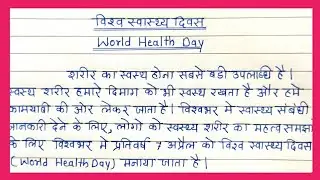 विश्व स्वास्थ्य दिवस
World Health Day
शरीर का स्वस्थ होना सबसे बड़ी उपलब्धि है।
स्वस्थ शरीर हमारे दिमाग को भी स्वस्थ रखता है और हमें
कामयाबी की ओर लेकर जाता है। विश्वभर मे स्वास्थ्य संबंधी
जानकारी देने के लिए, लोगो को स्वस्थ्य शरीर का महत्व समझाने
के लिए विश्वभर में प्रतिवर्ष 7 अप्रैल को विश्व स्वास्थ्य दिवस
(World Health Day) मनाया जाता है।